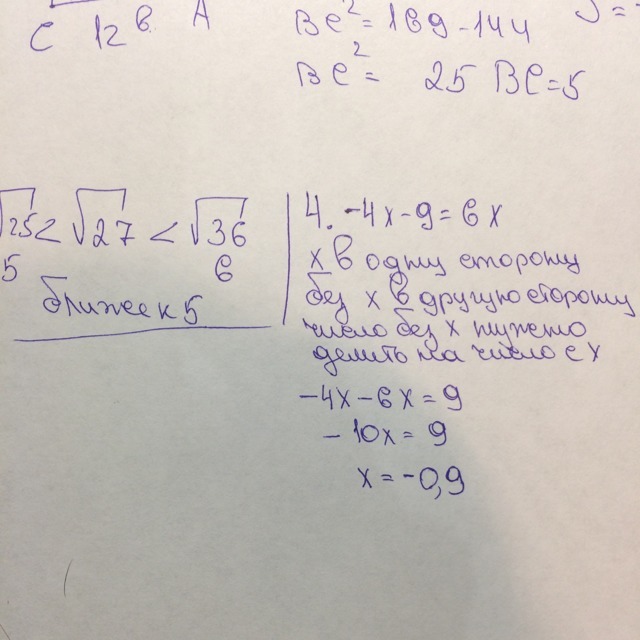 C 12 в А
ВС² = 169 - 144
ВС² = 25 ВС = 5
√25 < √27 < √36
5 6
ближе к 5
4. -4x - 9 = 6x
х в одну сторону
без х в другую сторону
число без х нужно
делить на число с х
-4x - 6x = 9
-10x = 9
x = -0,9